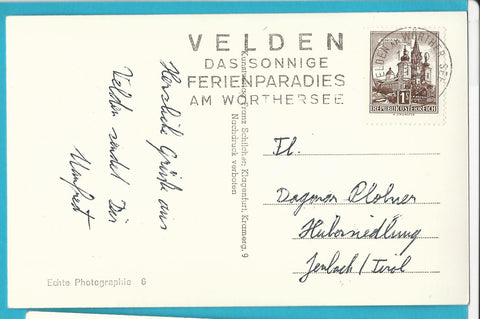 VELDEN
DAS SONNIGE
FERIENPARADIES
AM WÖRTHERSEE
VELDEN AM WÖRTHER SEE
1S
REPUBLIK ÖSTERREICH
Herzliche Grüße aus
Velden sendet Dir
Manfred
Franz Schilcher, Klagenfurt, Kramerg. 9
Nachdruck verboten
Frl.
Dagmar Plobner
Hubersiedlung
Jenbach/Tirol
Echte Photographie 6